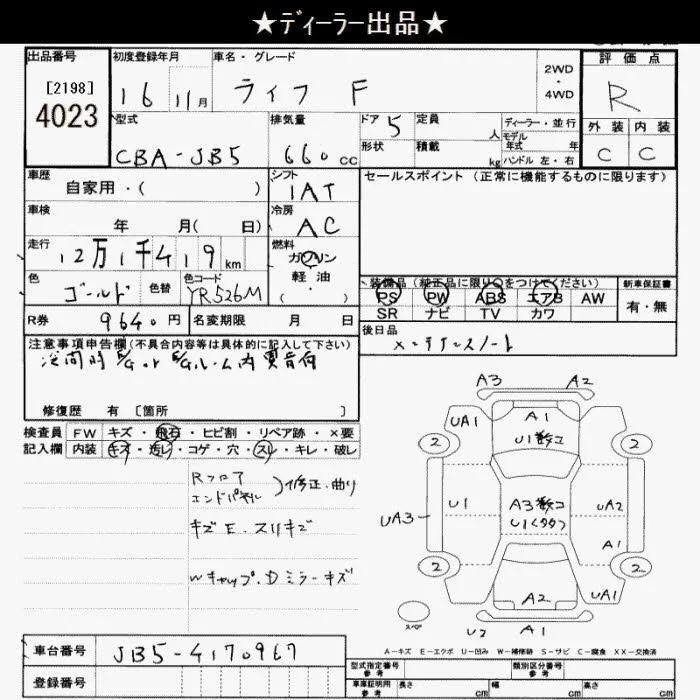 ★ディーラー出品★
出品番号 初度登録年月 車名・グレード 2WD・4WD 評価点
[2198] 4023 16 11月 ライフ F R
型式 排気量 ドア 5 定員 人 ディーラー・並行 外装 内装
CBA-JB5 660cc 形状 積載 kg モデル年式 年 ハンドル 左・右 C C
車歴 シフト セールスポイント (正常に機能するものに限ります)
自家用・( ) IAT
車検 冷房
年 月( 日) AC
走行 燃料
12万1千419km ガソリン
軽油
・( )
色 色替 色コード 装備品(純正品に限り○をつけてください) 新車保証書
ゴールド YR526M PS PW ABS エアB AW 有・無
SR ナビ TV カワ
R券 9640円 名変期限 月 日 後日品
メンテナンスノート
注意事項申告欄(不具合内容等は具体的に記入して下さい)
修復歴 有 [箇所 ]
検査員 FW キズ・飛石・ヒビ割・リペア跡・×要
記入欄 内装 キズ・汚レ・コゲ・穴・スレ・キレ・破レ
Rフロア
エンドパネル )修正・曲り
キズE・スリキズ
Wキャップ・Dミラーキズ
A3 A2
UA1 A1
2 U1数コ 2
U1 A3数コ UA2
UA3 U1(タタ) A1
2 2
A2 UA1
スペア U2 A1
A-キズ E-エクボ U-凹み W-補修跡 S-サビ C-腐食 XX-交換済
車台番号 JB5-4170967
型式指定番号 参考 類別区分番号 参考
登録番号 車庫証明用 参考 長さ cm 幅 cm 高さ cm